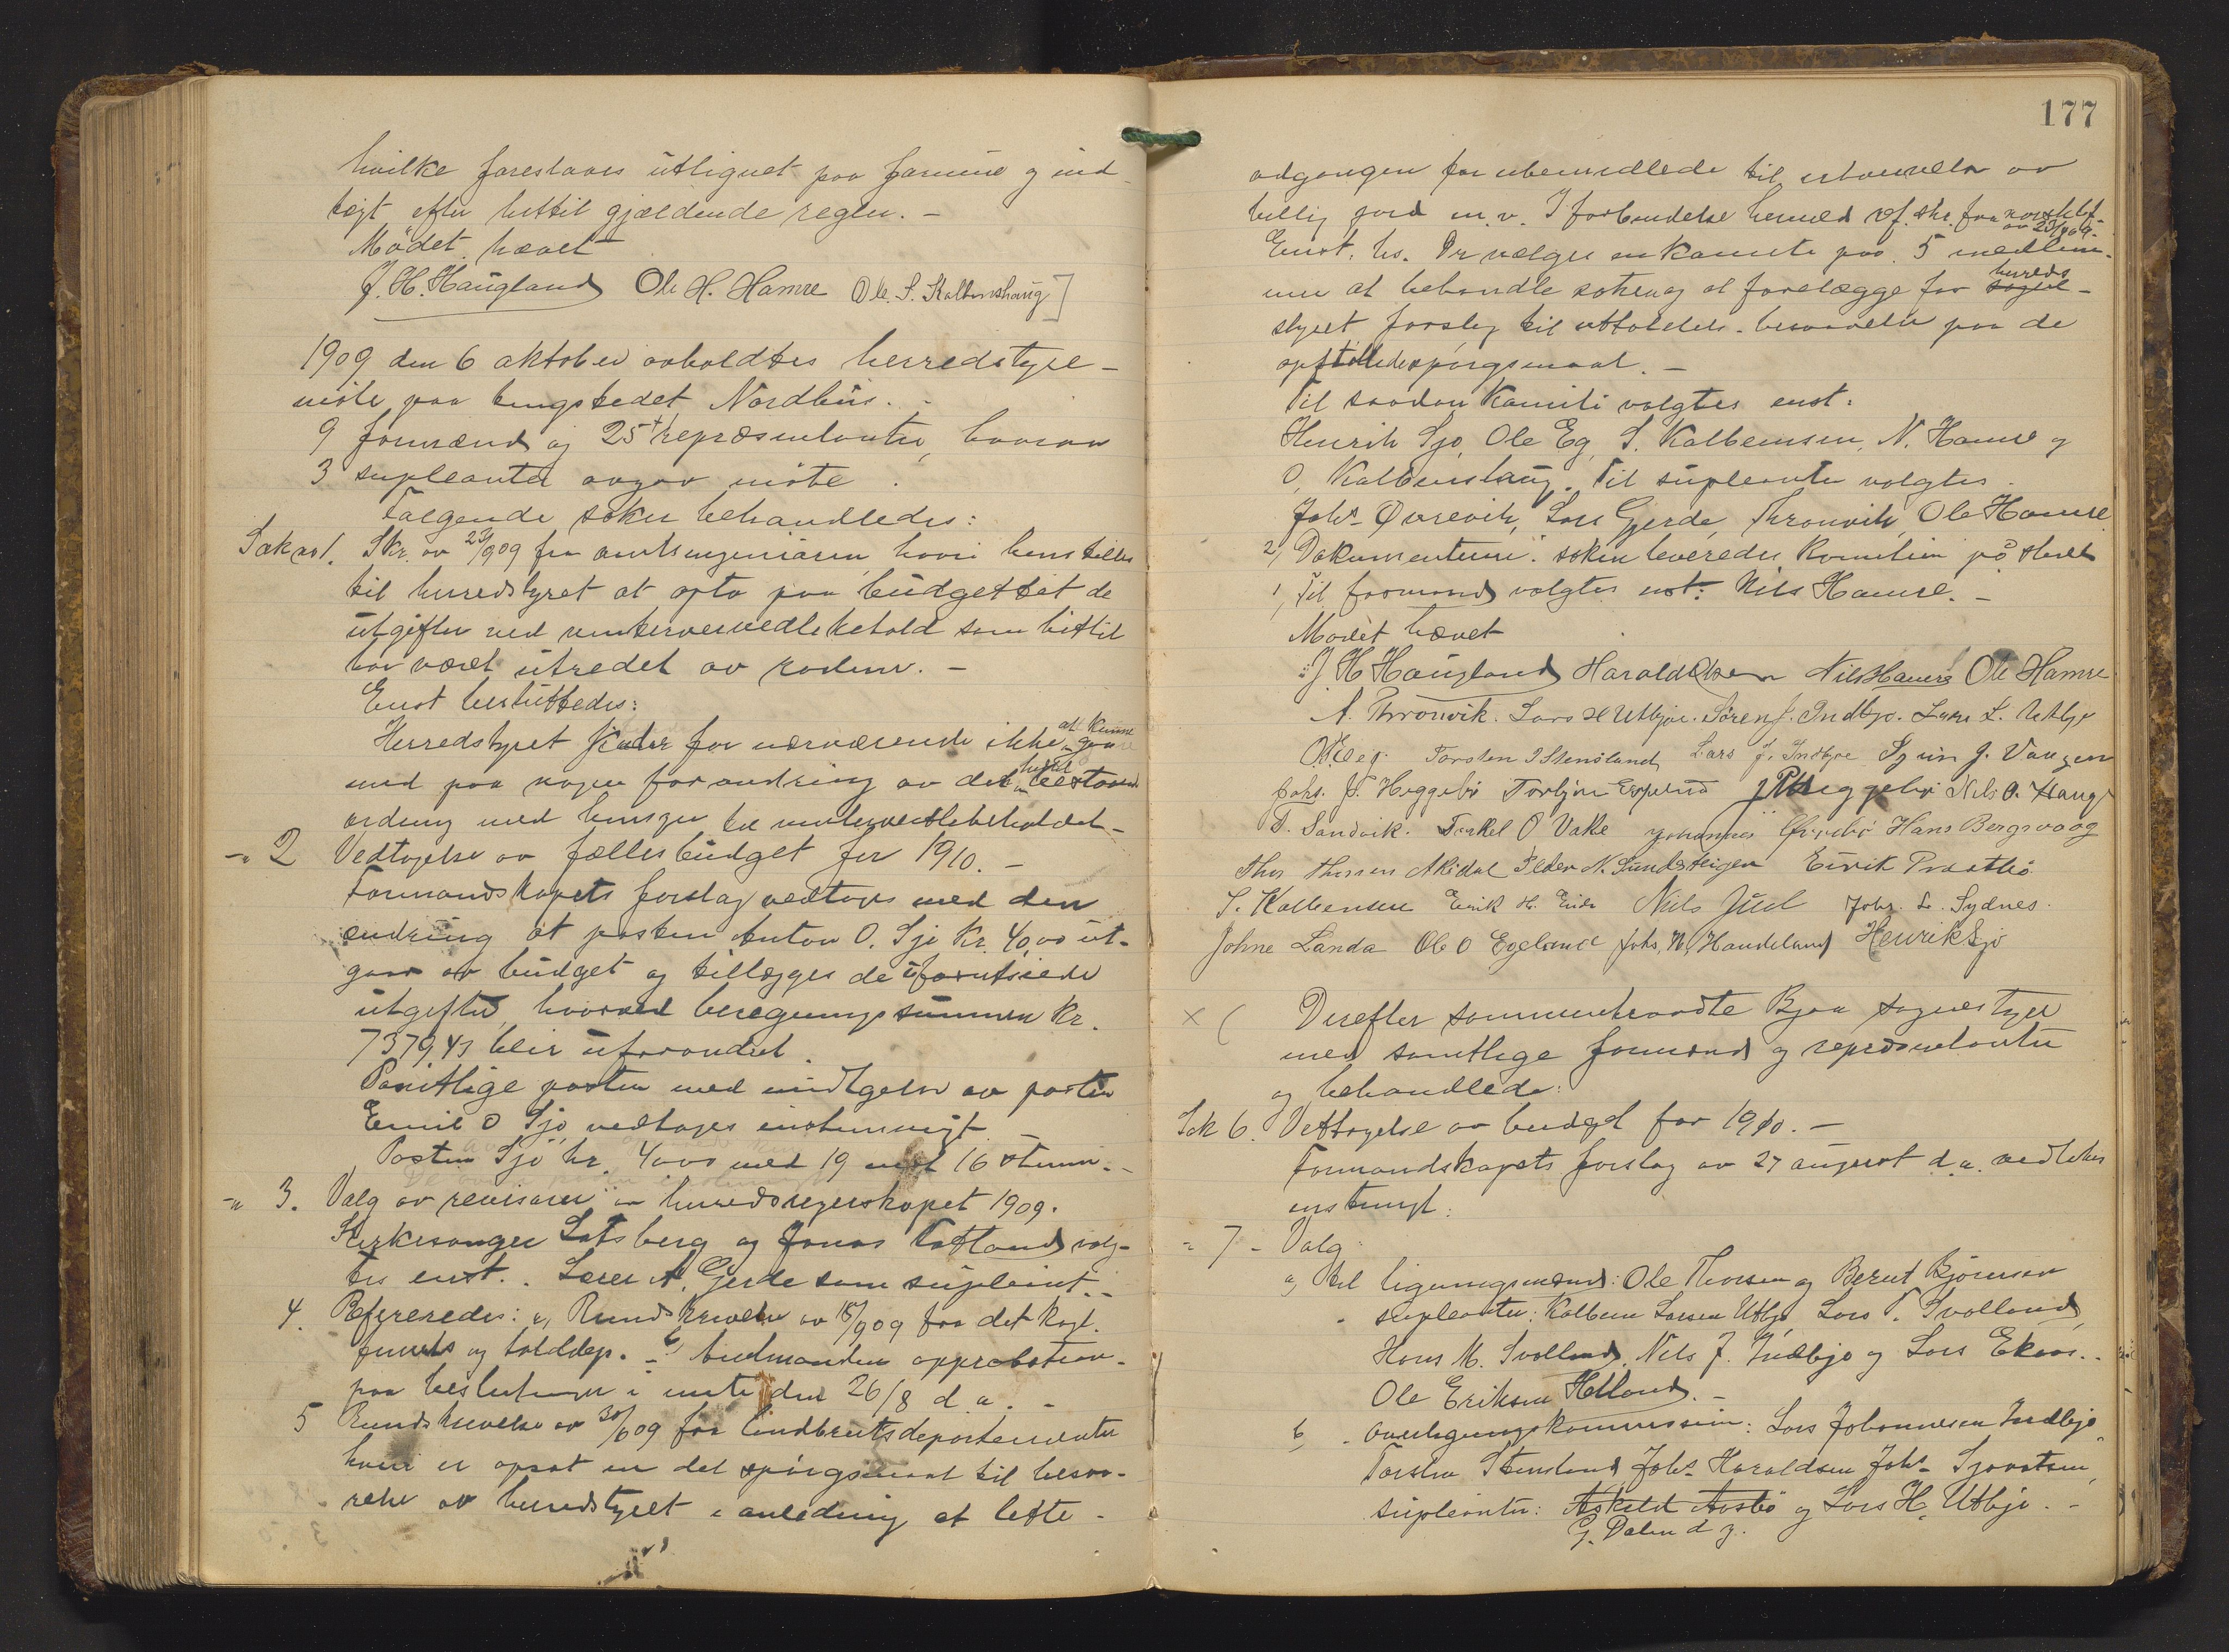 hvilke forestaaes utlignet paa formue og ind-
tægt efter hittil gjældende regler. -
Mödet hævet
J. H. Haugland Ole H. Hamre Ole S. Kalbenshaug
1909 den 6 oktober avholdtes herredstyre-
möte paa tingstedet Nordhus. -
9 formænd og 25 repræsentanter, hvorav
3 supleanter avgav möte.
Følgende saker behandledes:
Sak no 1. Skr. av 23/909 fra amtsingeniøren hvori henstilles
til herredstyret at opta paa budgettet de
utgifter ved vintervervedlikehold som hittil
har været utredet av rodene. -
Enst besluttedes:
Herredstyret finder for nærværende ikke at kunne gaa
med paa nogen forandring av det hittil bestaaende
ordning med hensyn til vintervedlikeholdet -
-"- 2 Vedtagelse av fællesbudget for 1910. -
Formandskapets forslag vedtoges med den
endring at posten Anton O. Sjo Kr. 40,00 ut-
gaar av budget og tillægges de uforutseede
utgifter, hvorved beregningssummen kr.
7379,43 blir uforandret.
Samtlige poster med undtagelse av posten
Emil O Sjö vedtages enstemmigt.
Posten Sjö kr. 40,00 med 19 mot 16 stemm. -
-"- 3. Valg av revisorer av herredsregnskapet 1909.
Kirkesanger Latsberg og Jonas Tatland valg-
tes enst. . Lærer A. Gjerde som supleant. -
4. Refereredes: a, Rundskrivelse av 18/909 fra det kgl.
finants og tolddep. - b, Amtmandens approbation
paa beslutninger i möte den 26/8 d. a. -
5 Rundskrivelse av 30/609 fra landbruksdepartementet
hvori er opsat en del spörgsmaal til besva-
relse av herredstyret i anledning at lette -
177
adgangen for ubemidlede til erhvervelse av
billig jord m. v. I forbindelse hermed ref. skr. fra norsk
av 23/909.
Enst. bs. Der vælges en komite paa 5 medlem-
mer at behandle saken og at forelægge for herreds
sogne-
styret forslag til uttalelse - besvarelse paa de
opstillede spörgsmaal. -
Til saadan Komite valgtes enst:
Henrik Sjo, Ole Eg, S. Kalbensen, N. Hamre og
O. Kalbenshaug. Til supleanter valgtes
Johs Øvrevik, Lars Gjerde, Thronvik, Ole Hamre
2, Dokumenterne i saken leveredes komiteen på stedet
1, Til formand valgtes enst: Nils Hamre. -
Mödet hævet
J H Haugland Harald Olsen Nils Hamre Ole Hamre
A. Thronvik. Lars H Utbjoe. Sören J. Indbjo. Lars L. Utbjo
O. Eeg. Torsten I Stensland Lars J. Indbjoe Sjur J. Vangen
Johs. J. Heggebö Torbjörn Espeland Heggebö Nils O. Haug
T. Sandvik. Torkel O Vake Johannes Hans Bergsvaag
Thor Thorsen Milidal Peder N. Sundsteigen Eirik Prestbö
S. Kalbensen Eirik H. Eide Nils Juel Johs. L. Sydnes.
Johne Landa Ole O Egeland Johs. N. Handeland Henrik Sjo
× ( Derefter sammentraadte Bjoa sognestyre
med samtlige formænd og repræsentanter
og behandlede:
Sak 6. Vedtagelse av budget for 1910. -
Formandskapets forslag av 27 august d. a. vedtokes
enstemmigt.
" 7 - Valg
a, til ligningsmænd: Ole Thorsen og Bernt Björnsen
- supleanter: Kalben Larsen Utbjo Lars T. Svolland,
Hans M. Svolland, Nils J. Indbjo og Lars Ekaas. -
Ole Eriksen Helland. -
b, - overligningskommission: Lars Johannesen Indbjo,
Torsten Stensland Johs Haraldsen Johs Sjovatsen,
supleanter: Askild Aasbö og Lars H. Utbjo. -
G. Dalen d y.